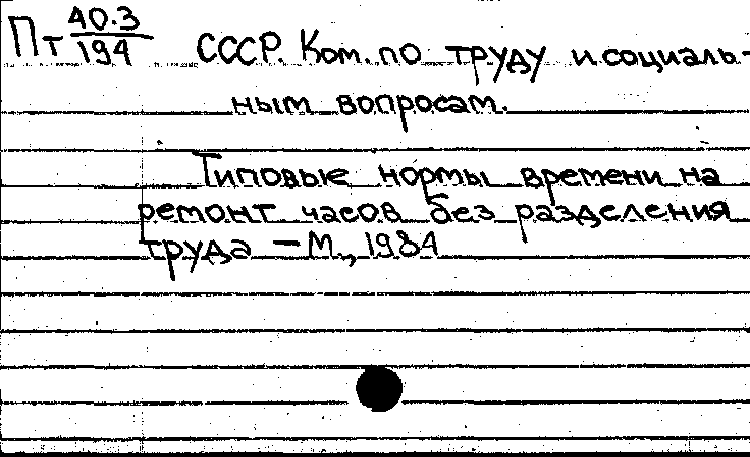 Пт 40.3/194 СССР. Ком. по труду и социаль-
ным вопросам.
Типовые нормы времени на
ремонт часов без разделения
труда – М., 1984